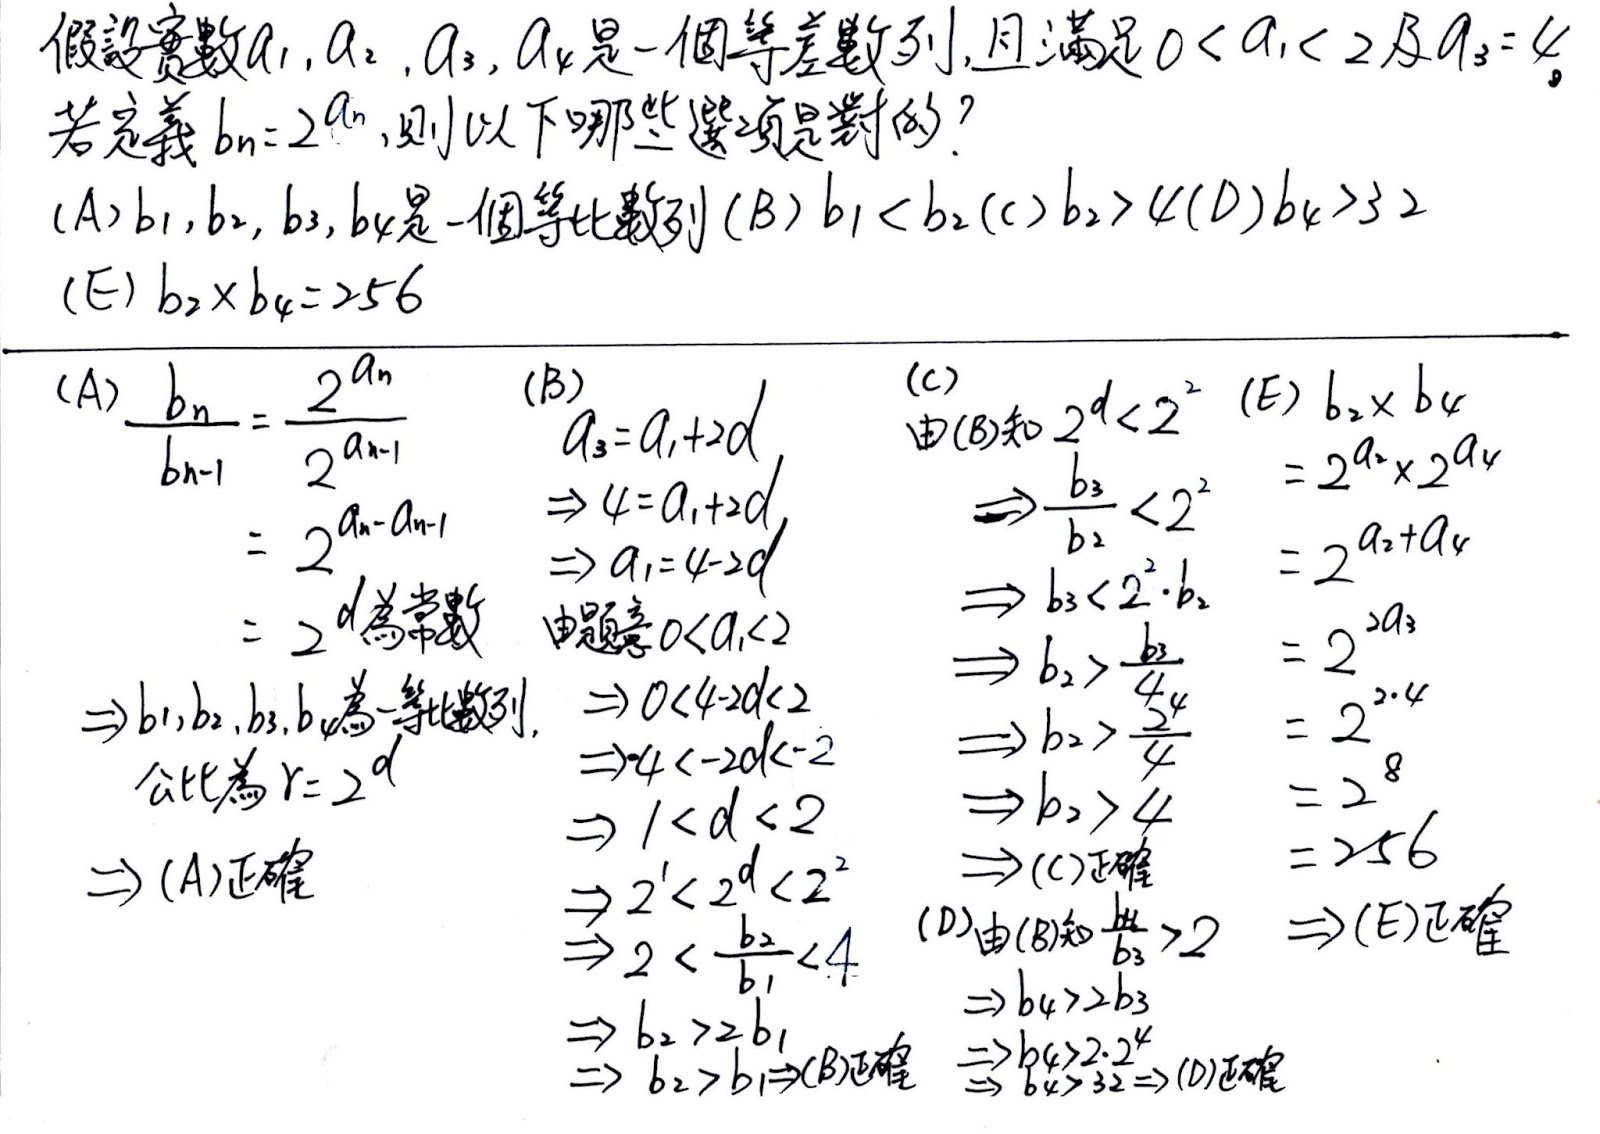 假設實數a₁,a₂,a₃,a₄是一個等差數列,且滿足0<a₁<2及a₃=4。
若定義bₙ=2^{aₙ},則以下哪些選項是對的?
(A)b₁,b₂,b₃,b₄是一個等比數列(B)b₁<b₂(C)b₂>4(D)b₄>32
(E)b₂×b₄=256
(A) bₙ/bₙ₋₁=2^{aₙ}/2^{aₙ₋₁}
=2^{aₙ-aₙ₋₁}
=2^d為常數
⇒b₁,b₂,b₃,b₄為一等比數列,
公比為r=2^d
⇒(A)正確
(B)
a₃=a₁+2d
⇒4=a₁+2d
⇒a₁=4-2d
由題意0<a₁<2
⇒0<4-2d<2
⇒-4<-2d<-2
⇒1<d<2
⇒2¹<2^d<2²
⇒2<b₂/b₁<4
⇒b₂>2b₁
⇒b₂>b₁⇒(B)正確
(C)
由(B)知2^d<2²
⇒b₃/b₂<2²
⇒b₃<2²·b₂
⇒b₂>b₃/4
⇒b₂>2⁴/4
⇒b₂>4
⇒(C)正確
(D)由(B)知b₄/b₃>2
⇒b₄>2b₃
⇒b₄>2·2⁴
⇒b₄>32⇒(D)正確
(E) b₂×b₄
=2^{a₂}×2^{a₄}
=2^{a₂+a₄}
=2^{2a₃}
=2^{2·4}
=2⁸
=256
⇒(E)正確